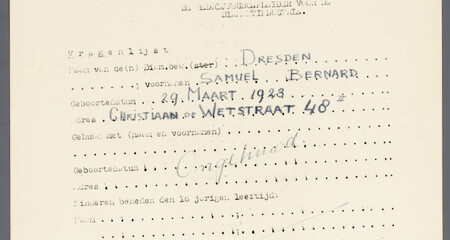 Vragenlijst
Naam van de(n) Diam.bew.(ster) DRESDEN
; voornamen SAMUEL BERNARD
Geboortedatum 29 MAART 1923
Adres CHRISTIAAN DE WETSTRAAT 48
Gehuwd met (naam en voornamen)
Ongehuwd
Geboortedatum
Adres
Kinderen beneden den 16 jarigen leeftijd:
Naam